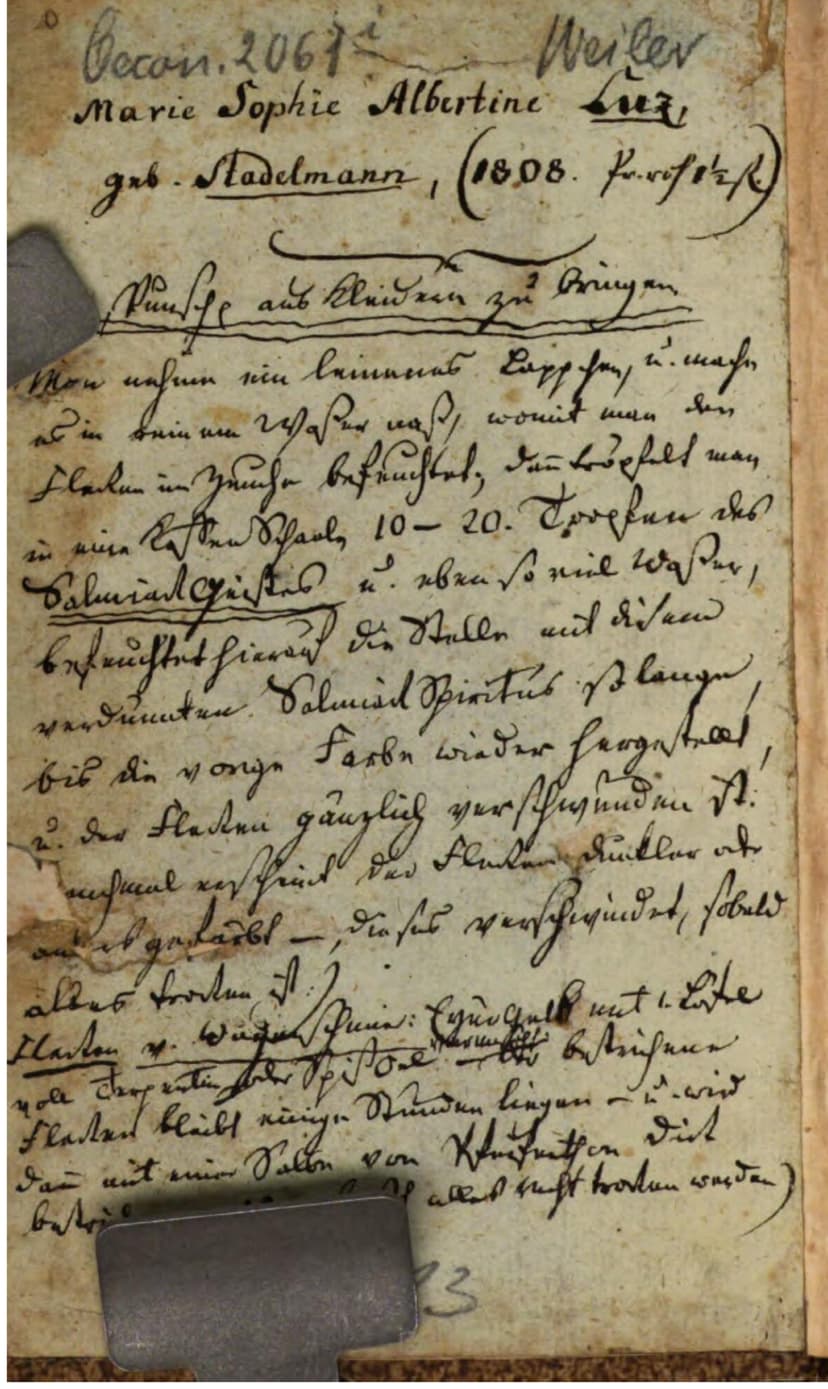 Oecon. 2061 i Weiler
Marie Sophie Albertine Luz,
geb. Stadelmann, (1808. Pr. 1½ f.)
Punsch aus Kleidern zu bringen
Man nehme ein leinenes Läppchen, u. mache
es in reinem Waßer naß, womit man den
Flecken im Zeuche befeuchtet, dañ tröpfelt man
in eine Kaffee Schaale 10 – 20. Tropfen des
Salmiack Geistes u. eben so viel Waßer,
befeuchtet hierauf die Stelle mit disem
verdünnten Salmiack Spiritus so lange,
bis die vorige Farbe wieder hergestellt,
u. der Flecken gänzlich verschwunden ist.
erscheint der Flecken dunkler oder
anders gefärbt –, dieses verschwindet, sobald
alles trocken ist.)
Flecken v. Wagenschmir: Eyergelb mit 1. Löfel
voll Terpentin oder Spiköel vermischt bestrichene
Flecken bleibt einige Stunden liegen – u. wird
dañ mit einer Salbe von dick
alles recht trocken werden)
13